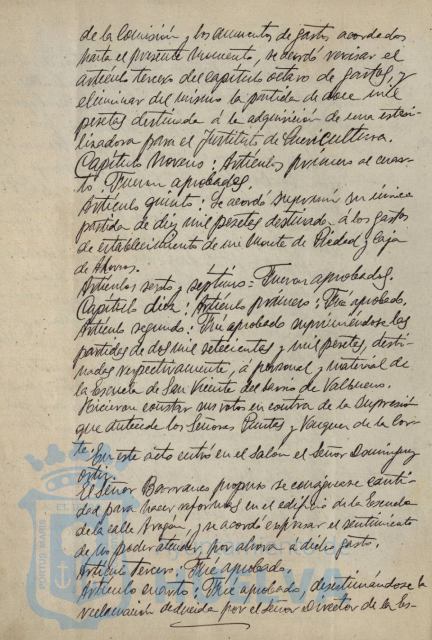 de la Comisión y los aumentos de gastos acordados
hasta el presente momento, se acordó revisar el
artículo tercero del capítulo octavo de gastos, y
eliminar del mismo la partida de doce mil
pesetas destinada á la adquisición de una esteri-
lizadora para el Instituto de Puericultura.
Capítulo Noveno: Artículos primero al cuar-
to: Fueron aprobados.
Artículo quinto: Se acordó suprimir su única
partida de diez mil pesetas destinada á los gastos
de establecimiento de un Monte de Piedad y Caja
de Ahorros.
Artículos sexto y septimo = Fueron aprobados.
Capítulo diez: Artículo primero: Fué aprobado.
Artículo segundo: Fué aprobado suprimiéndose las
partidas de dos mil setecientas y mil pesetas, desti-
nadas respectivamente, á personal y material de
la Escuela de San Vicente del barrio de Valbueno.
Hicieron constar sus votos en contra de la supresión
que antecede los Señores Puntas y Vazquez de la Cor-
te. En este acto entró en el Salon el Señor Dominguez
Ortiz.
El Señor Barranco propuso se consignase canti-
dad para hacer reformas en el edificio de la Escuela
de la calle Aragón y se acordó expresar el sentimiento
de no poder atender, por ahora á dicho gasto.
Artículo tercero: Fué aprobado.
Artículo cuarto: Fué aprobado, desestimándose la
reclamación deducida por el Señor Director de la Es-
PORTUS MARIS
HUELVA